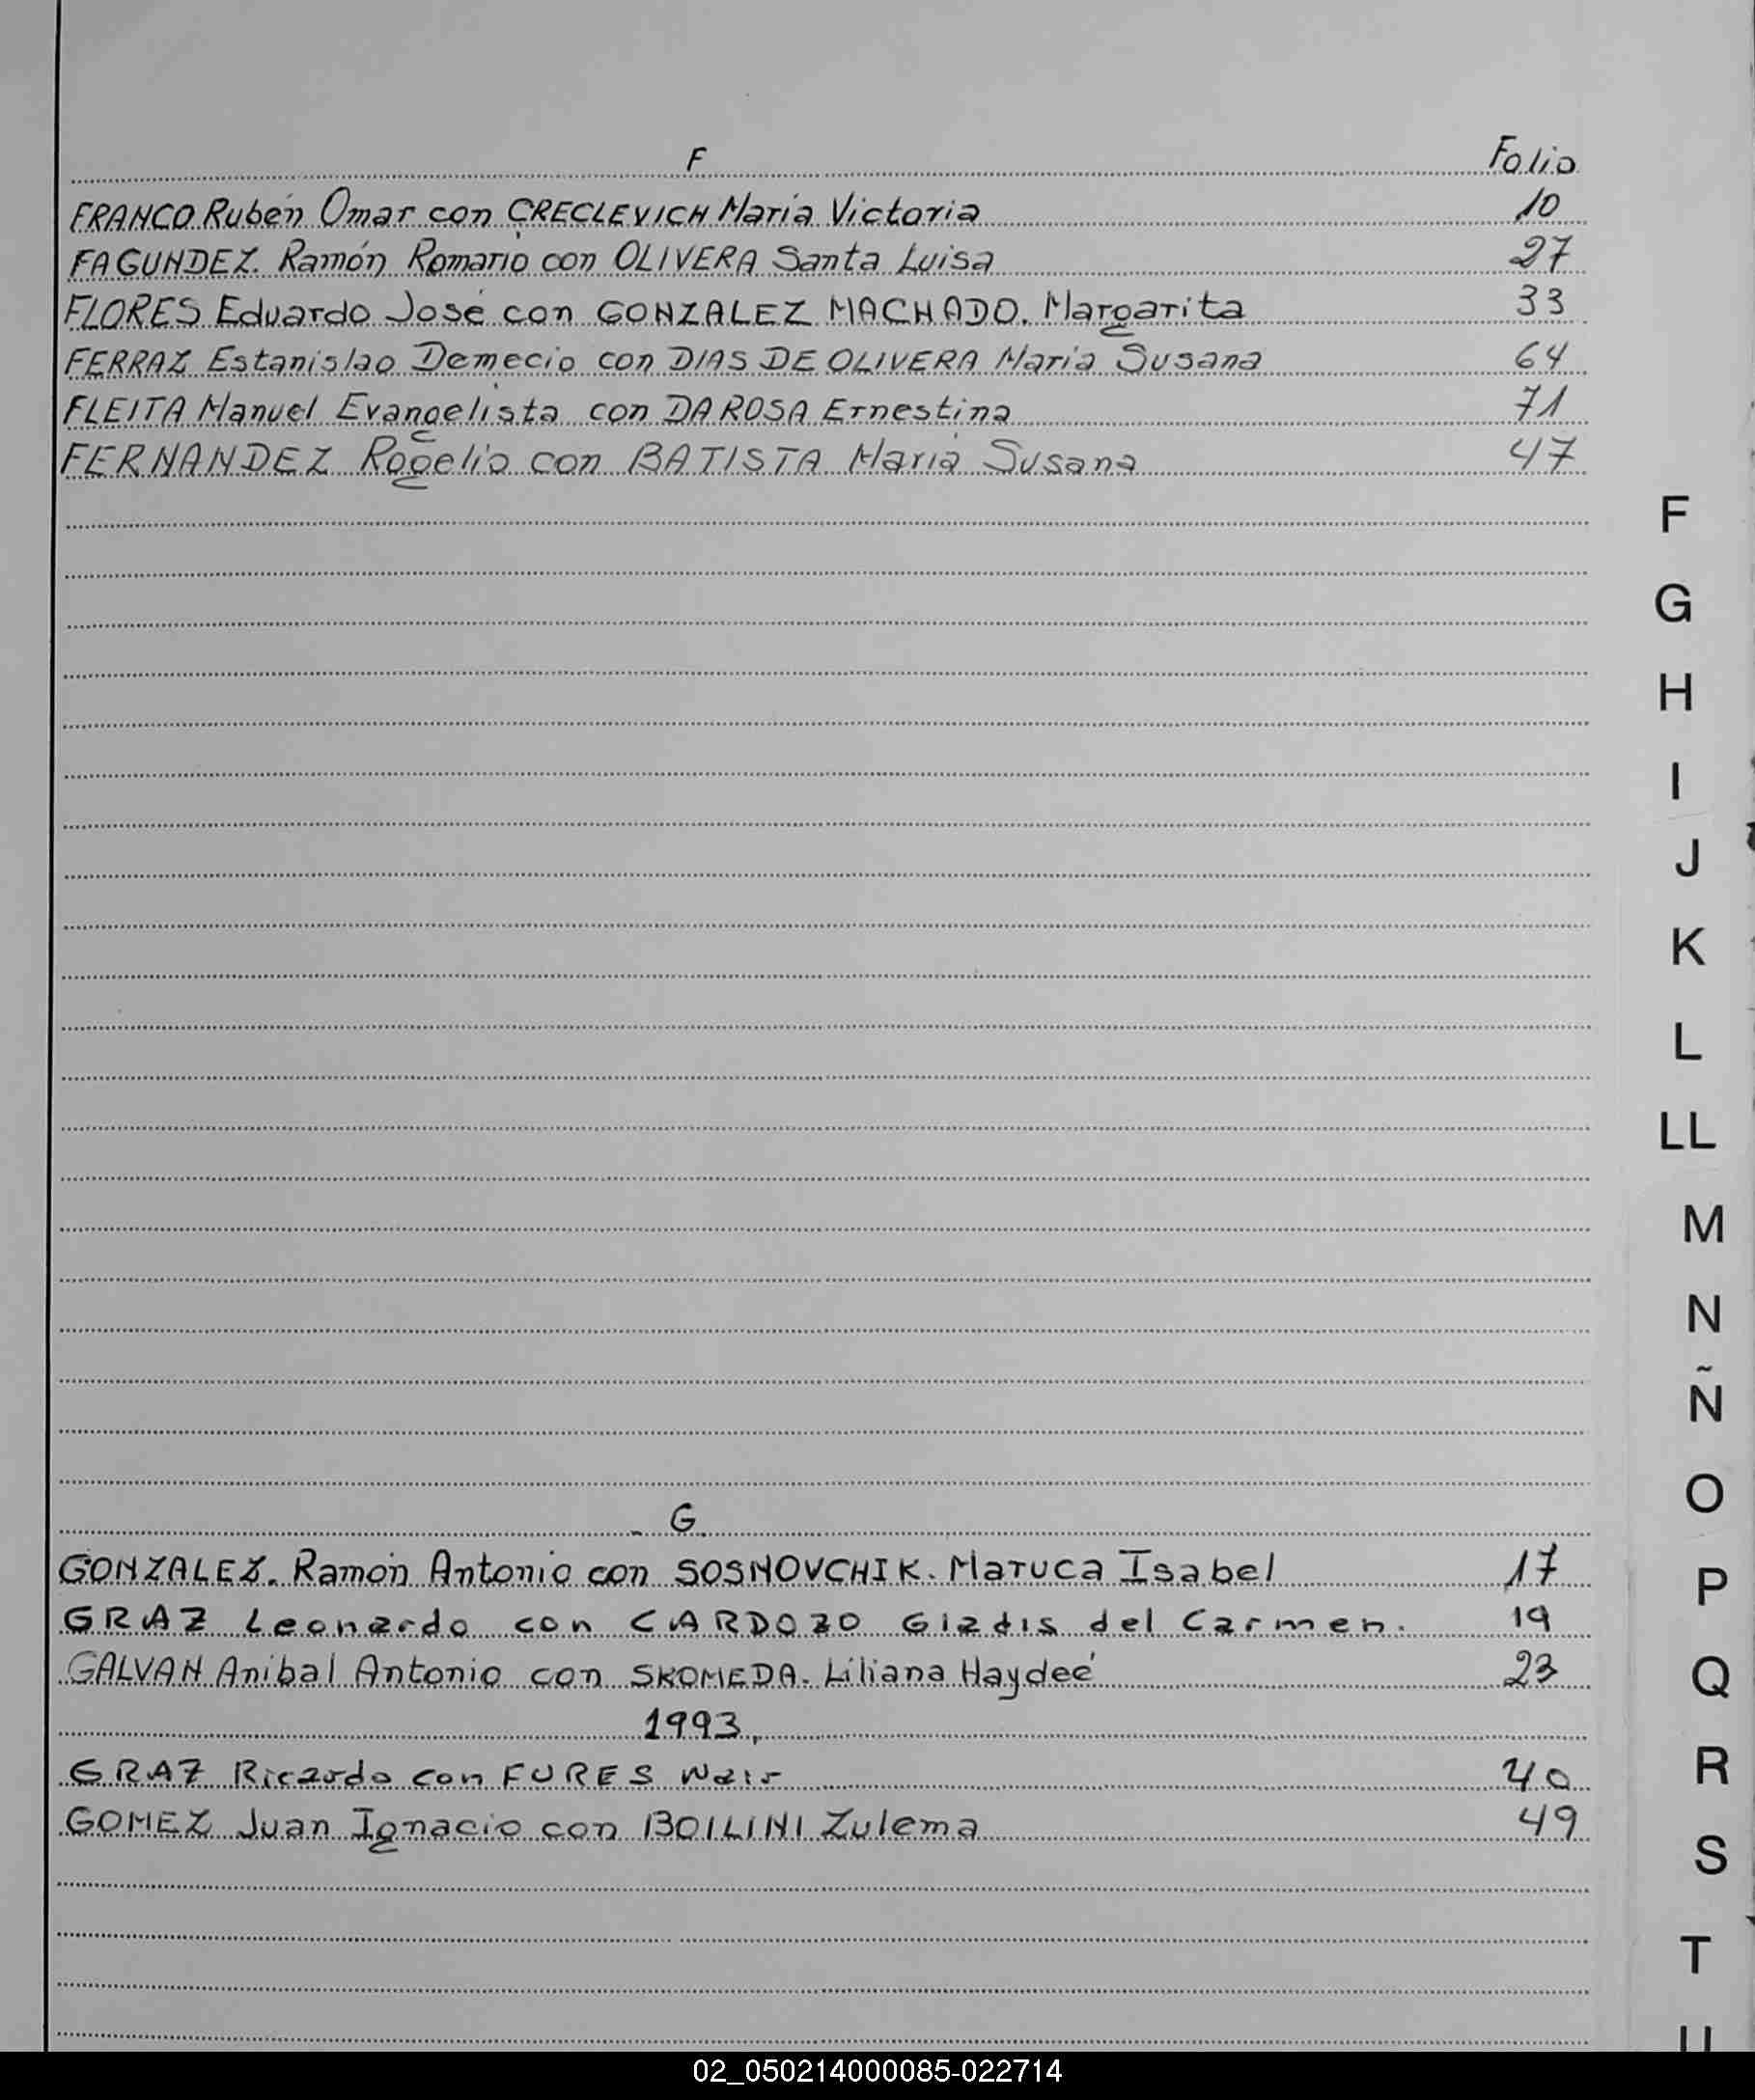 F Folio
FRANCO Rubén Omar con CRECLEVICH María Victoria 10
FAGUNDEZ. Ramón Romario con OLIVERA Santa Luisa 27
FLORES Eduardo José con GONZALEZ MACHADO. Margarita 33
FERRAZ Estanislao Demecio con DIAS DE OLIVERA María Susana 64
FLEITA Manuel Evangelista con DA ROSA Ernestina 71
FERNANDEZ Rogelio con BATISTA María Susana 47
F
G
H
I
J
K
L
LL
M
N
Ñ
O
P
Q
R
S
T
U
G.
GONZALEZ. Ramón Antonio con SOSNOVCHIK. Maruca Isabel 17
GRAZ Leonardo con CARDOZO Gladis del Carmen. 19
GALVAN Anibal Antonio con SKOMEDA. Liliana Haydeé 23
1993,
GRAZ Ricardo con FURES Nair 40
GOMEZ Juan Ignacio con BOILINI Zulema 49
02_050214000085-022714